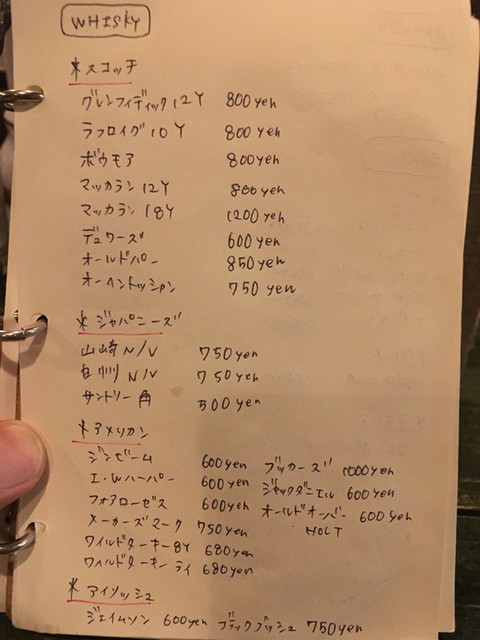 WHISKY
*スコッチ
グレンフィディック12Y 800yen
ラフロイグ10Y 800yen
ボウモア 800yen
マッカラン12Y 800yen
マッカラン18Y 1200yen
デュワーズ 600yen
オールドパー 850yen
オーヘントッシャン 750yen
*ジャパニーズ
山崎N/V 750yen
白州N/V 750yen
サントリー角 500yen
*アメリカン
ジンビーム 600yen ブッカーズ 1000yen
I.Wハーパー 600yen ジャックダニエル 600yen
フォアローゼス 600yen オールドオーバー 600yen
メーカーズマーク 750yen HOLT
ワイルドターキー8Y 680yen
ワイルドターキーライ 680yen
*アイリッシュ
ジェイムソン 600yen ブラックブッシュ 750yen